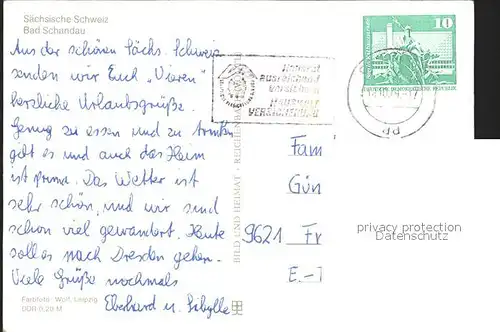 Sächsische Schweiz
Bad Schandau
Aus der schönen Sächs. Schweiz
senden wir Euch "Vieren"
herzliche Urlaubsgrüße.
Genug zu essen und zu trinken
gibt es und auch das Heim
ist prima. Das Wetter ist
sehr schön, und wir sind
schon viel gewandert. Heute
soll es nach Dresden gehen.
Viele Grüße nochmals
Eberhard u. Sibylle
Farbfoto: Wolf, Leipzig
DDR 0,20 M
BILD UND HEIMAT · REICHENBACH
Hausrat
ausreichend
versichern
Haushalt
VERSICHERUNG
10
Fam
Gün
9621 Fr
E.-T
privacy protection
Datenschutz